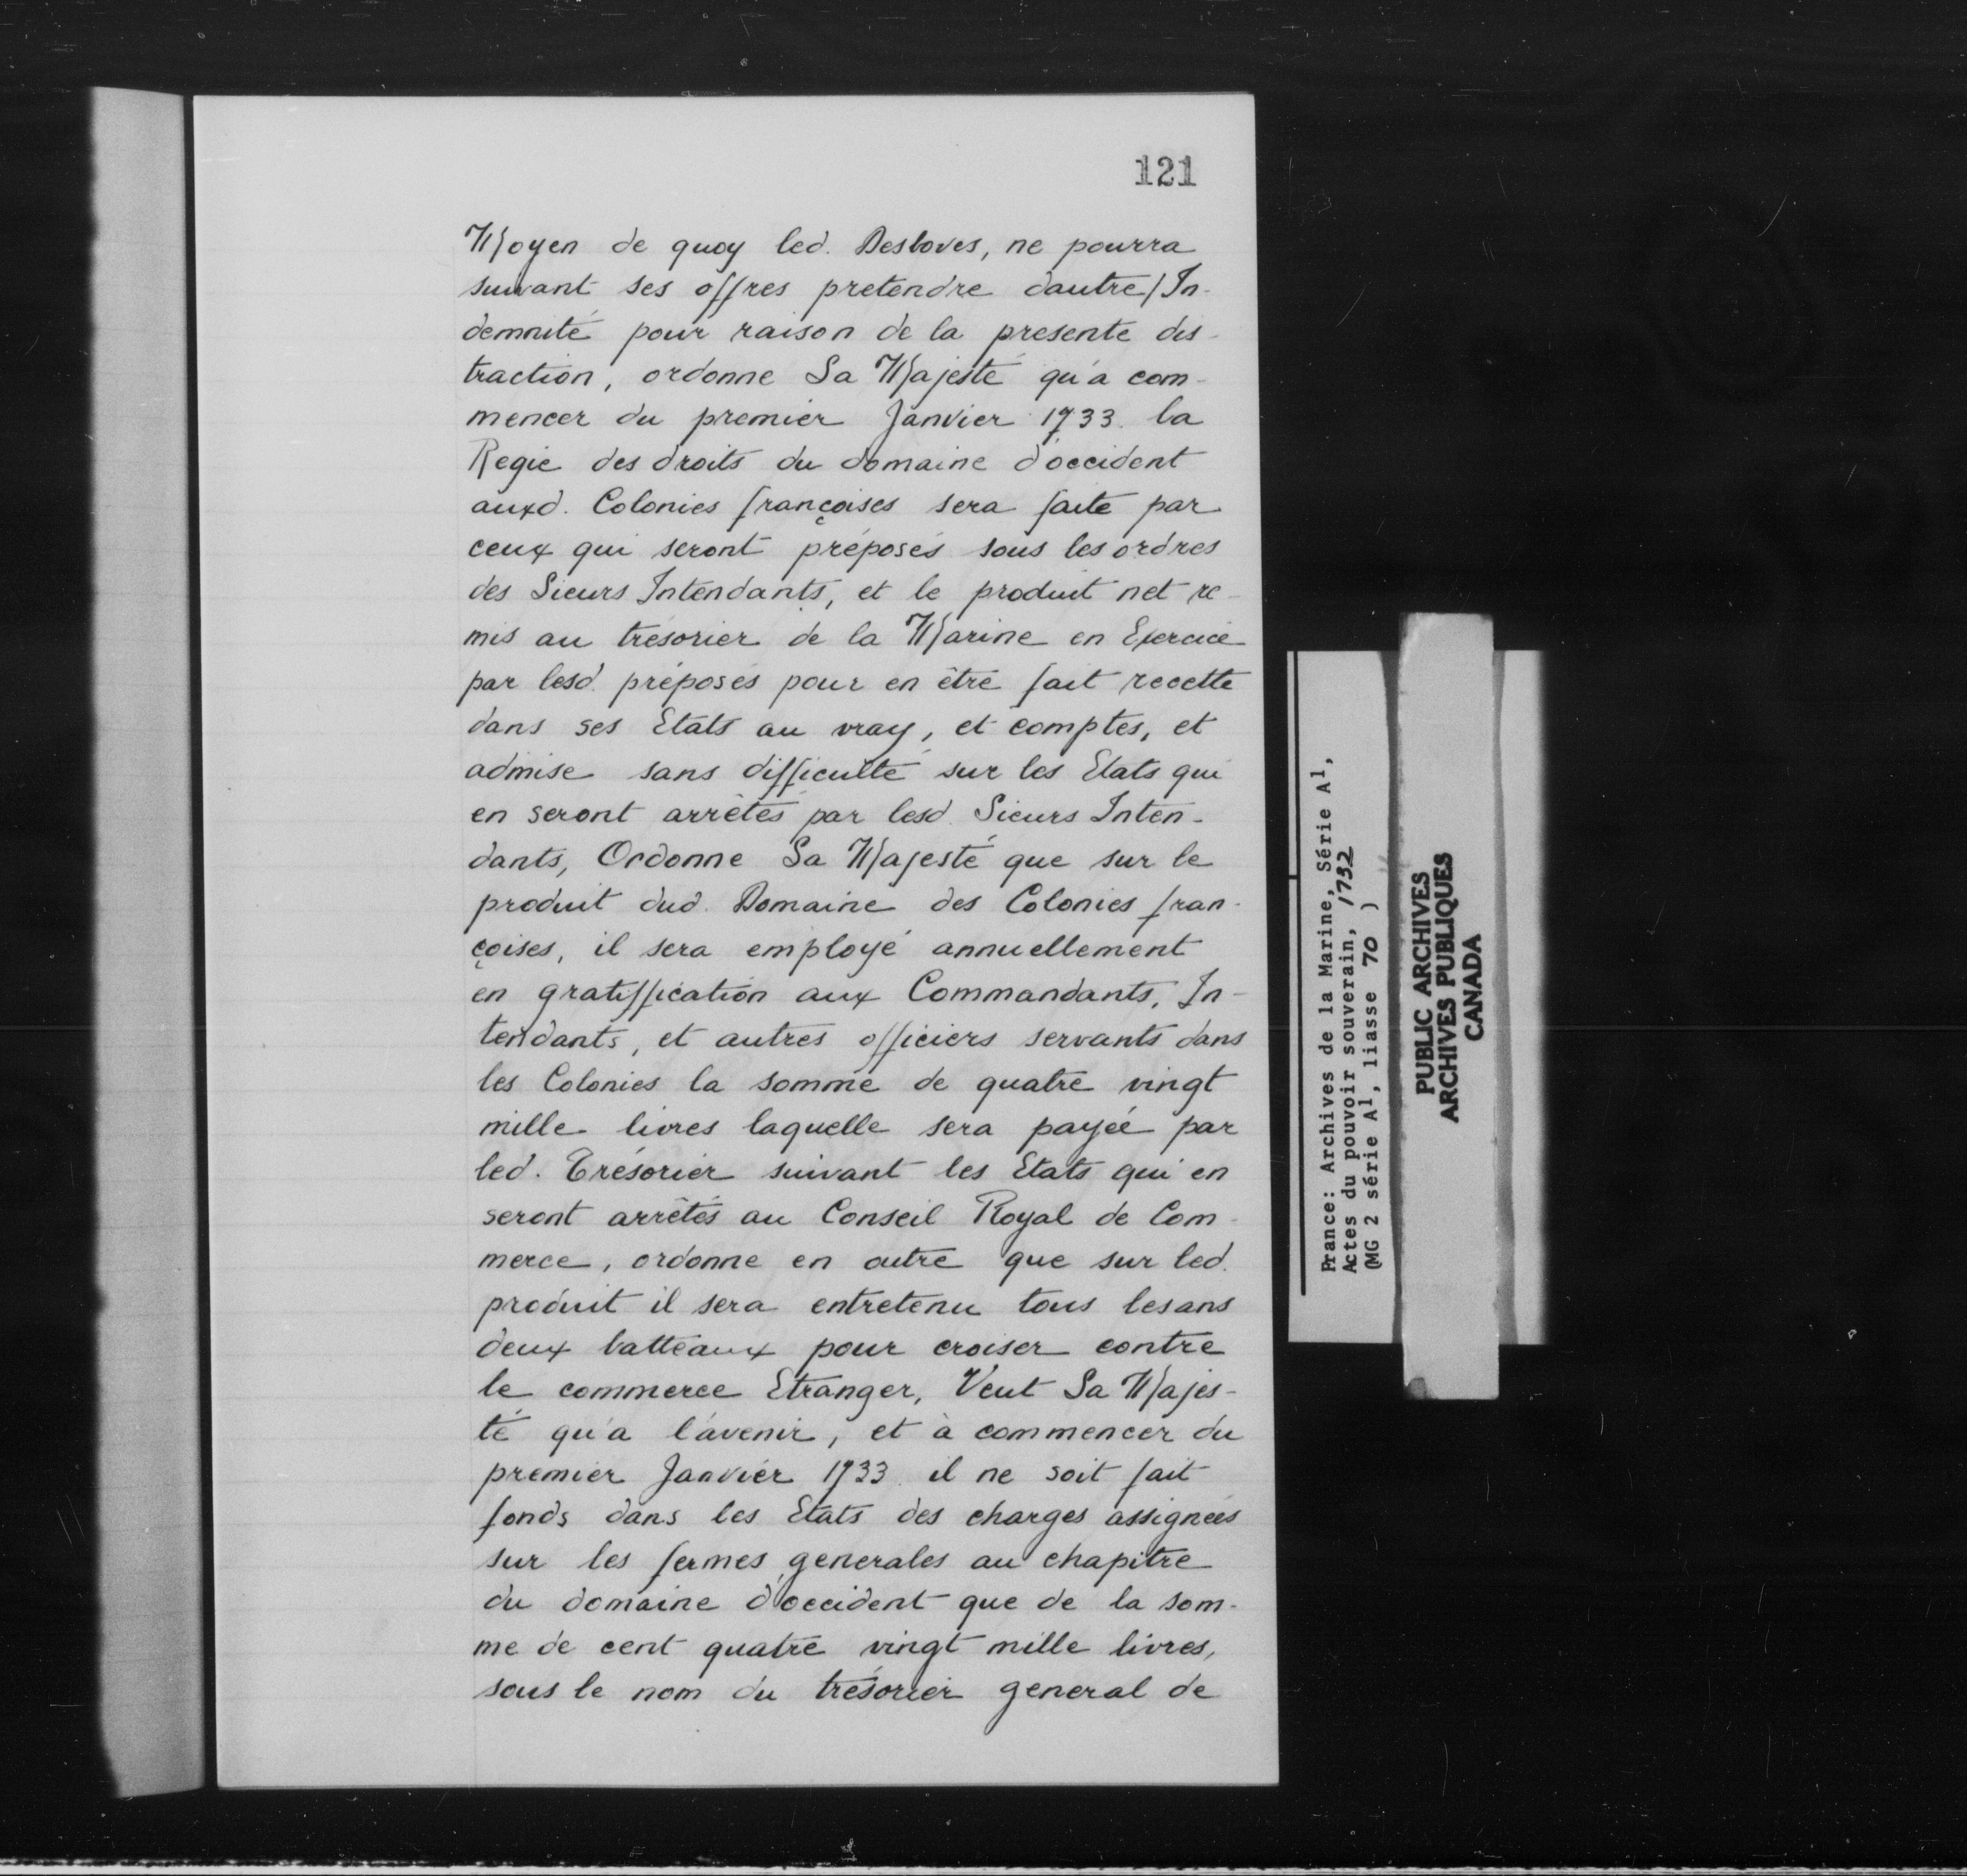 121
Moyen de quoy led. Desboves, ne pourra
suivant ses offres pretendre dautre / In-
demnité pour raison de la presente dis-
traction, ordonne Sa Majesté qu'a com-
mencer du premier Janvier 1733. la
Regie des droits du domaine d'occident
auxd. Colonies françoises sera faite par
ceux qui seront préposés sous les ordres
des Sieurs Intendants, et le produit net re-
mis au trésorier de la Marine en Exercice
par lesd. préposés pour en être fait recette
dans ses Etats au vray, et comptes, et
admise sans difficulté sur les Etats qui
en seront arrêtés par lesd. Sieurs Inten-
dants, Ordonne Sa Majesté que sur le
produit dud. Domaine des Colonies fran-
çoises, il sera employé annuellement
en gratiffication aux Commandants, In-
tendants, et autres officiers servants dans
les Colonies la somme de quatre vingt
mille livres laquelle sera payée par
led. Trésorier suivant les Etats qui en
seront arrêtés au Conseil Royal de Com-
merce, ordonne en outre que sur led.
produit il sera entretenu tous les ans
deux batteaux pour croiser contre
le commerce Etranger, Veut Sa Majes-
té qu'a l'avenir, et à commencer du
premier Janvier 1733. il ne soit fait
fonds dans les Etats des charges assignées
sur les fermes generales au chapitre
du domaine d'occident que de la som-
me de cent quatre vingt mille livres,
sous le nom du trésorier general de
France: Archives de la Marine, Série A1,
Actes du pouvoir souverain, 1732
(MG 2 série A1, liasse 70 )
PUBLIC ARCHIVES
ARCHIVES PUBLIQUES
CANADA